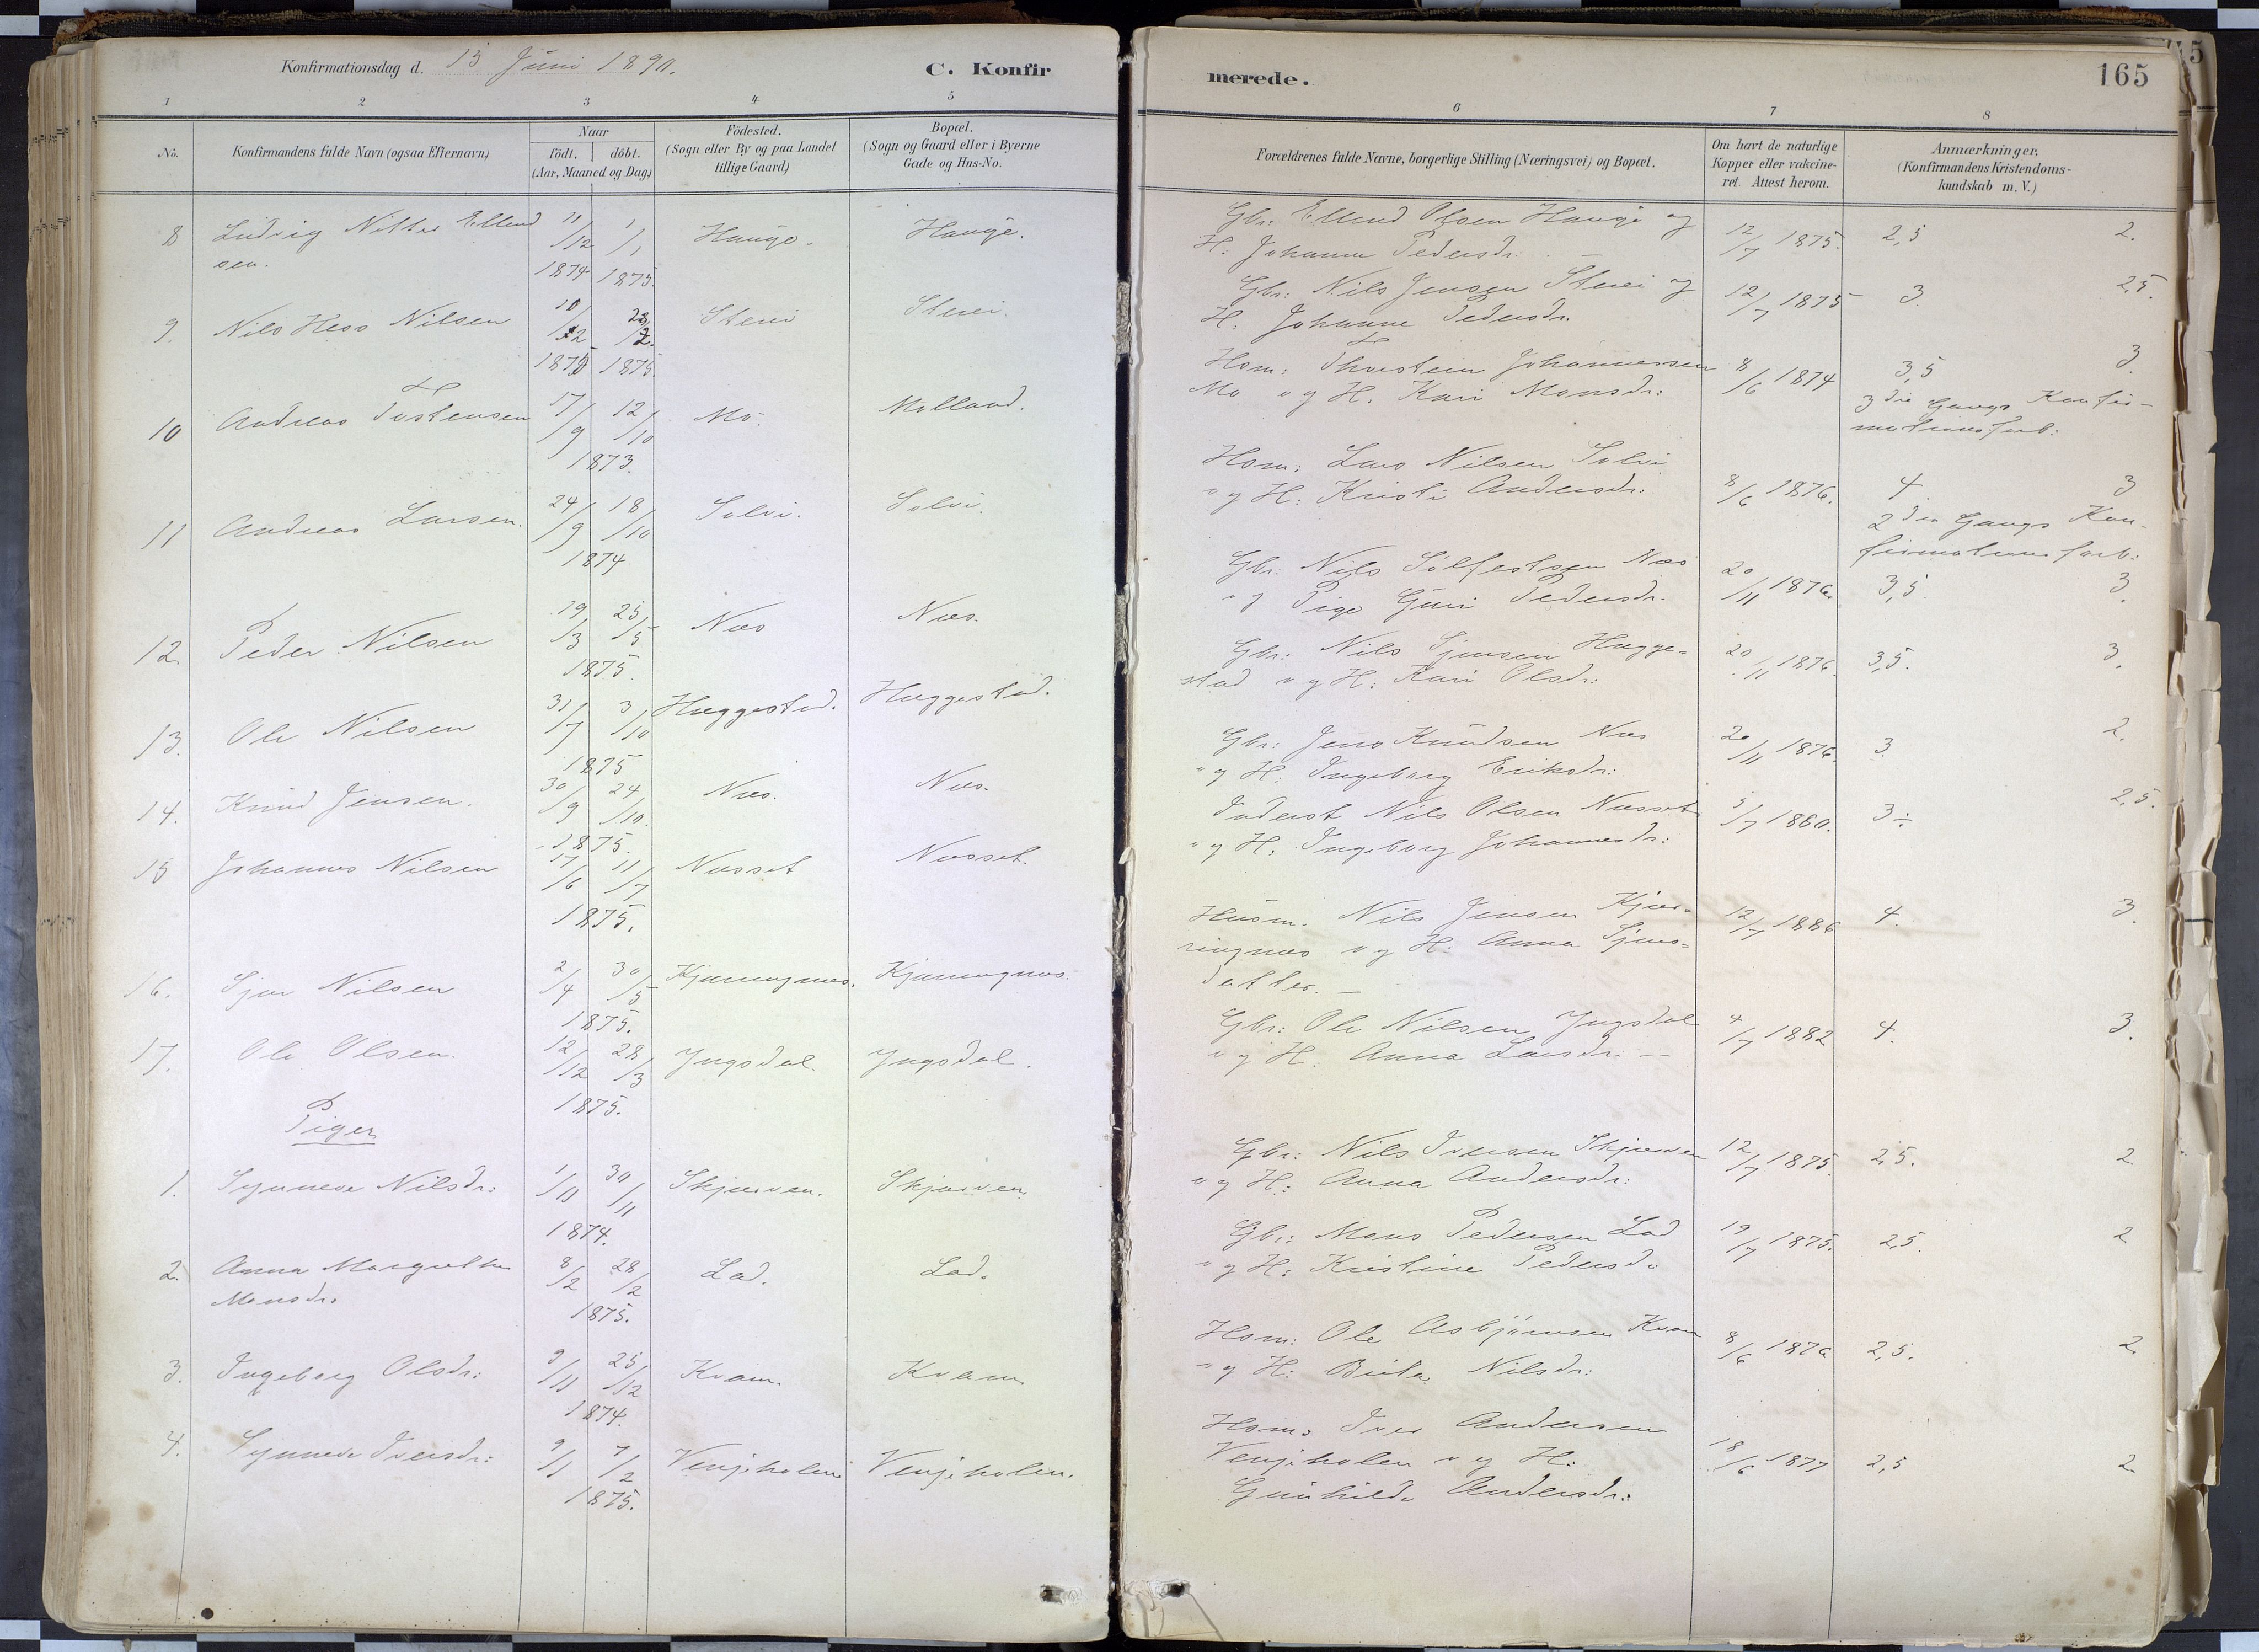 Konfirmationsdag d. 15 Juni 1890.
C. Konfir
1 2 3 4 5
No.
Konfirmandens fulde Navn (ogsaa Efternavn)
Naar
födt. döbt.
(Aar, Maaned og Dag)
Födested.
(Sogn eller By og paa Landet
tillige Gaard)
Bopæl.
(Sogn og Gaard eller i Byerne
Gade og Hus-No.
8 Ludvig Nitter Ellend 11/12 1/1 Hauge. Hauge.
sen. 1874 1875.
9. Nils Hess Nilsen 10/12 Sterei Sterei
1875.
10 Andreas Tostensen 17/9 12/10 Mo. Molland.
1873.
11 Andreas Larsen. 24/9 18/10 Solvi. Solvi.
1874
12. Peder Nilsen 19/3 25/5 Næs Næs.
1875.
13. Ole Nilsen 31/7 3/10 Huggestad. Huggestad.
1875
14. Knud Jensen. 30/9 24/10. Næs. Næs.
1875.
15 Johannes Nilsen 17/6 11/7 Næsset Næsset.
1875.
16. Sjur Nilsen 2/4 30/5 Kjæringnes. Kjæringnæs.
1875.
17. Ole Olsen. 12/12 28/3 Yngsdal. Yngsdal.
1875.
Piger
1. Synneve Nilsdr: 1/11 30/11 Skjerven. Skjerven.
1874.
2. Anna Margrethe 8/2 28/2 Lad. Lad.
Monsdr. 1875.
3. Ingeborg Olsdr: 9/11 25/12 Kvam. Kvam.
1874.
4. Synneve Iversdr: 9/1 7/2 Venjeholen Venjeholen.
1875.
merede.
165
6 7 8
Forældrenes fulde Navne, borgerlige Stilling (Næringsvei) og Bopæl.
Om havt de naturlige
Kopper eller vakcine-
ret. Attest herom.
Anmærkninger.
(Konfirmandens Kristendoms-
kundskab m. V.)
Gbr: Ellend Olsen Hauge og 12/7 1875. 2,5 2.
H: Johanne Pedersdr.
Gbr: Nils Jensen Sterei og 12/7 1875 3. 2.5.
H. Johanne Pedersdr.
Hsm: Thorstein Johannessen 8/6 1874 3,5 3.
Mo og H. Kari Monsdr: 3die Gangs Konfir-
mationsforb:
Hsm: Lars Nilsen Solvi
og H: Kristi Andersdr: 8/6 1876. 4 3
2den Gangs Kon-
firmationsforb:
Gbr: Nils Sölfestsen Næs 20/11 1876. 3,5. 3.
og Pige Guri Pedersdr.
Gbr: Nils Sjursen Hugge= 20/11 1876. 3,5. 3.
stad og H: Kari Olsdr:
Gbr: Jens Knudsen Næs 20/11 1876. 3. 2.
og H. Ingeborg Eriksdr:
Inderst Nils Olsen Næsset 5/7 1860. 3÷ 2,5.
og H. Ingeborg Johannesdr:
Husm. Nils Jensen Kjæ= 12/7 1886 4. 3.
ringnæs og H: Anna Sjurs=
datter. —
Gbr: Ole Nilsen Yngsdal 4/7 1882 4. 3.
og H. Anna Larsdr. —
Gbr: Nils Iversen Skjerven 12/7 1875. 2,5. 2
og H: Anna Andersdr:
Gbr: Mons Pedersen Lad 19/7 1875. 2,5. 2
og H: Kristine Pedersdr.
Hsm: Ole Asbjörnsen Kvam 8/6 1876 2,5. 2.
og H: Brita Nilsdr:
Hsm. Iver Andersen
Venjeholen og H: 18/6 1877 2,5 2.
Gunhilde Andersdr: